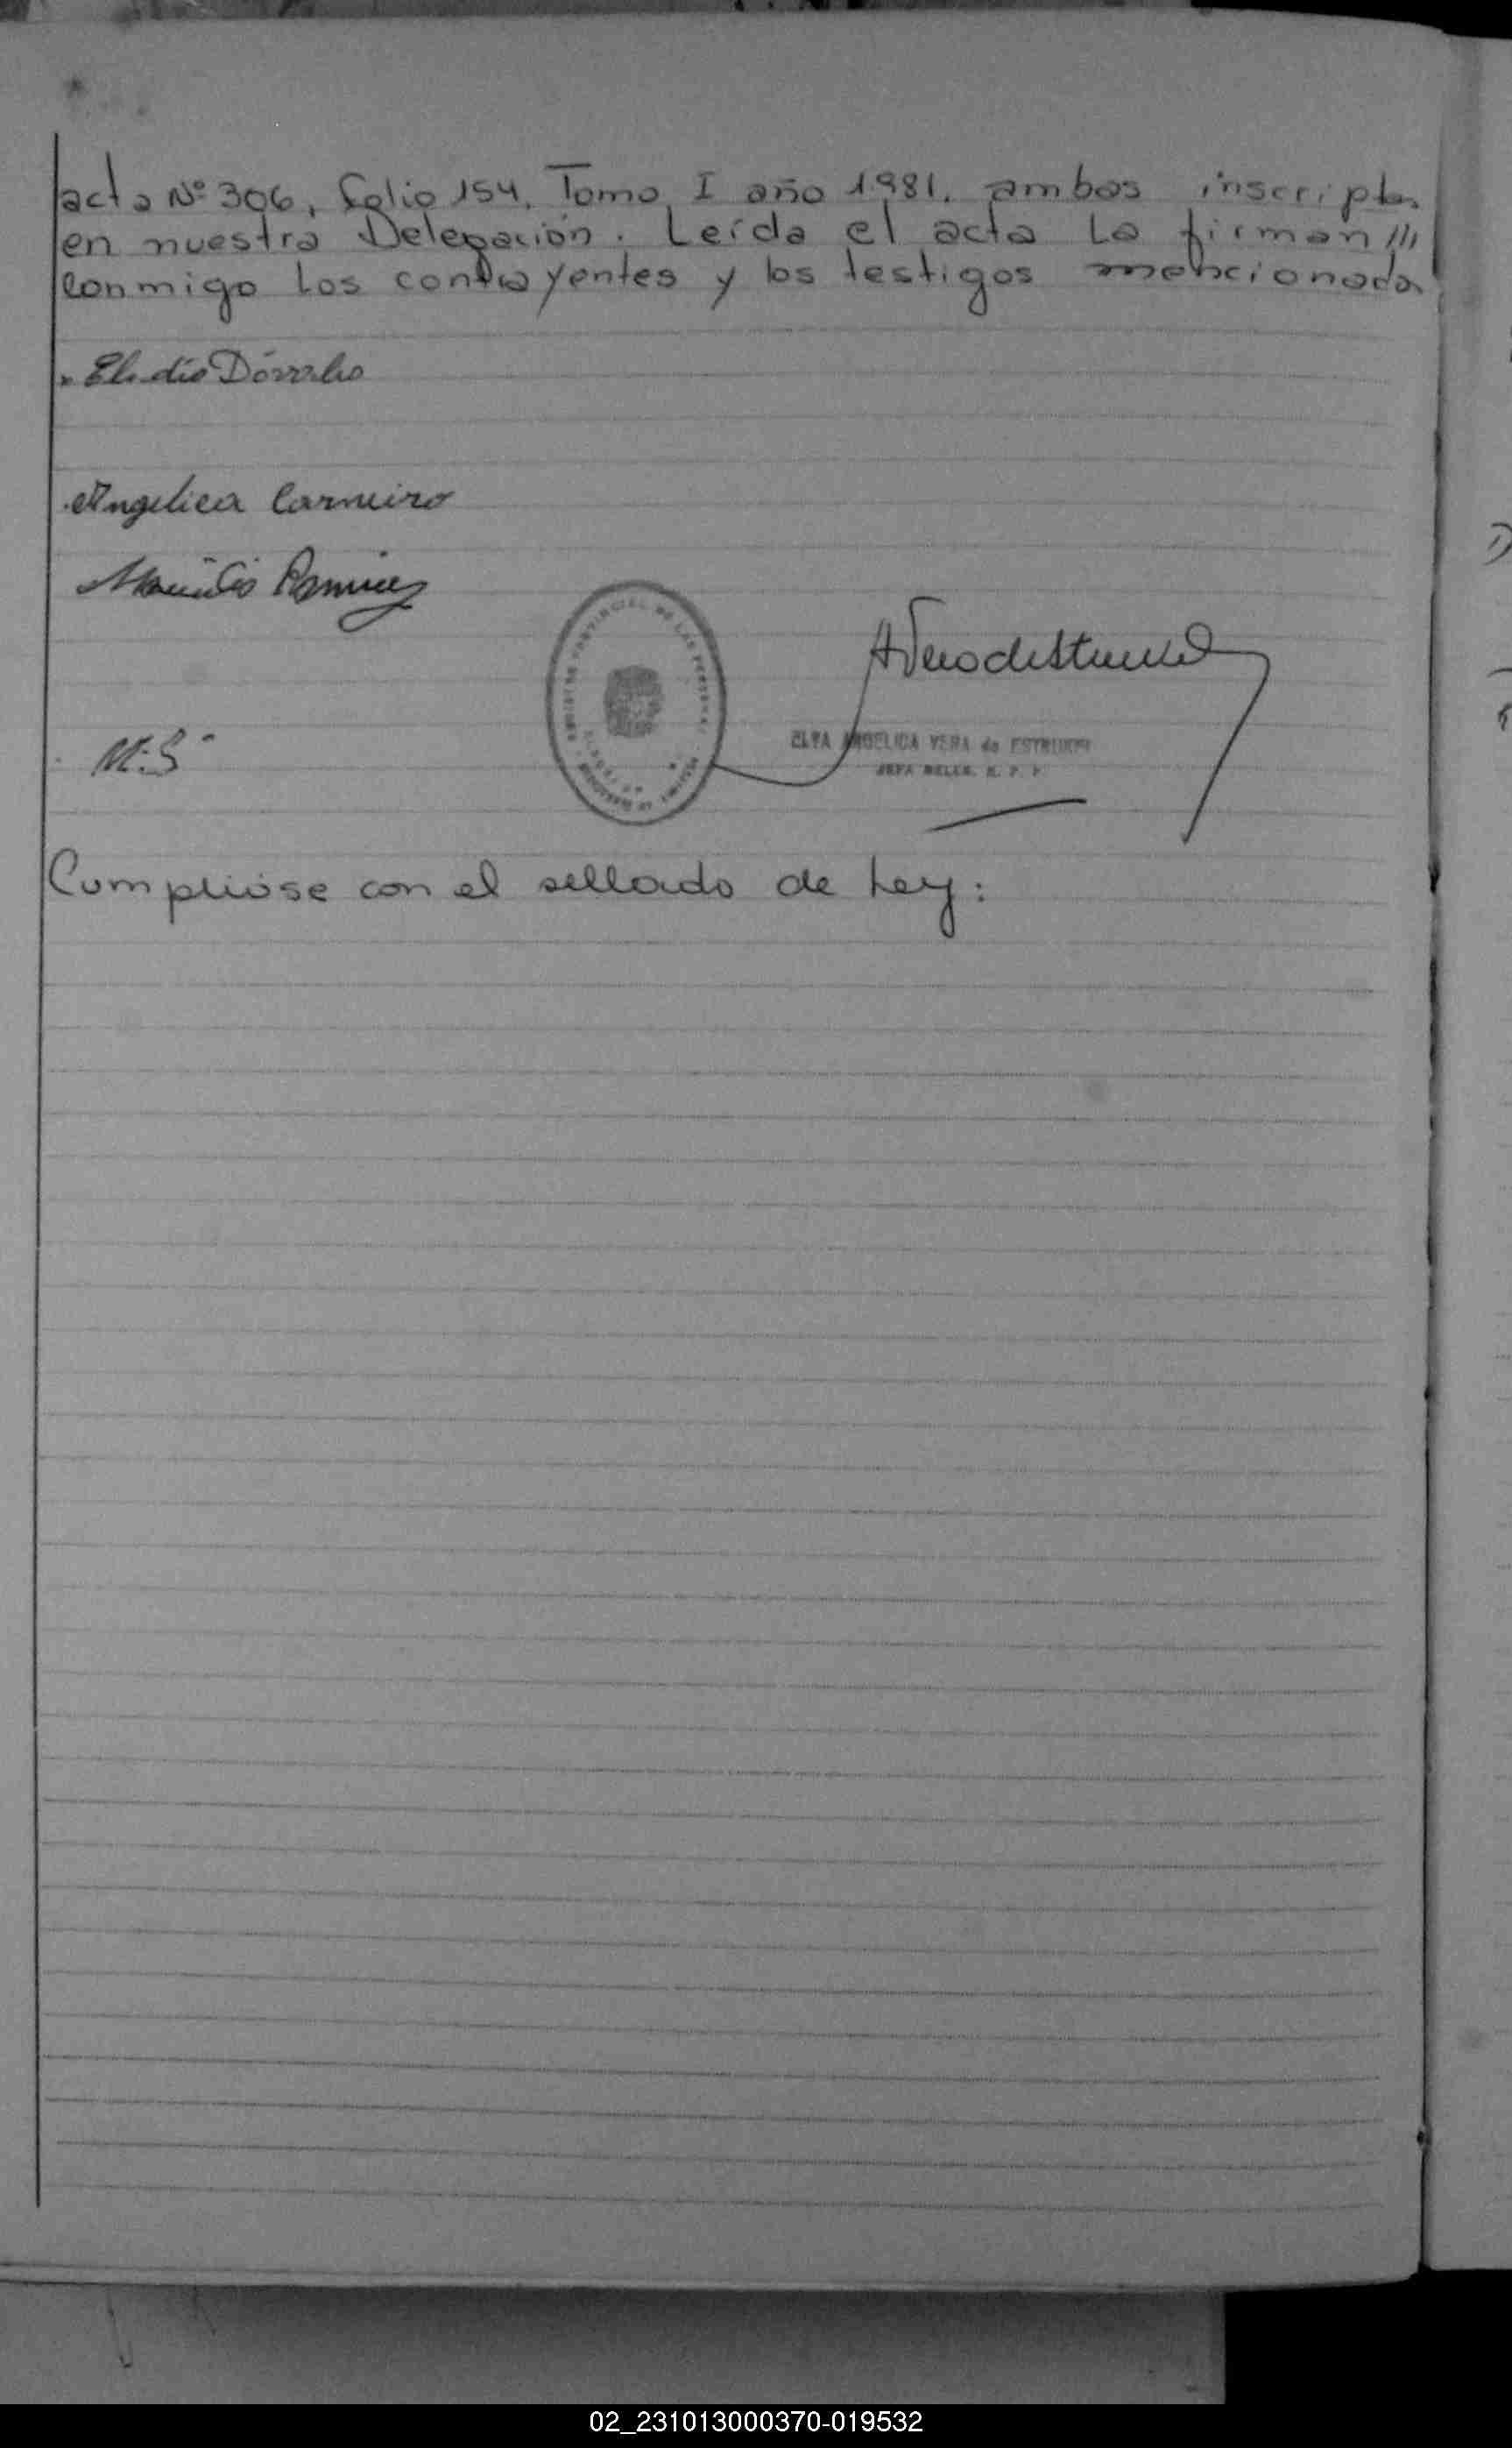 acta Nº 306, folio 154, Tomo I año 1981, ambos inscriptos
en nuestra Delegación. Leída el acta la firman ///
conmigo los contrayentes y los testigos mencionados
Eladio
Angelica Carneiro
Ramirez
REGISTRO PROVINCIAL DE LAS PERSONAS
ELVA ANGELICA VERA de
JEFA DELEG. R. P. P.
M.S
Cumplióse con el sellado de Ley:
02_231013000370-019532